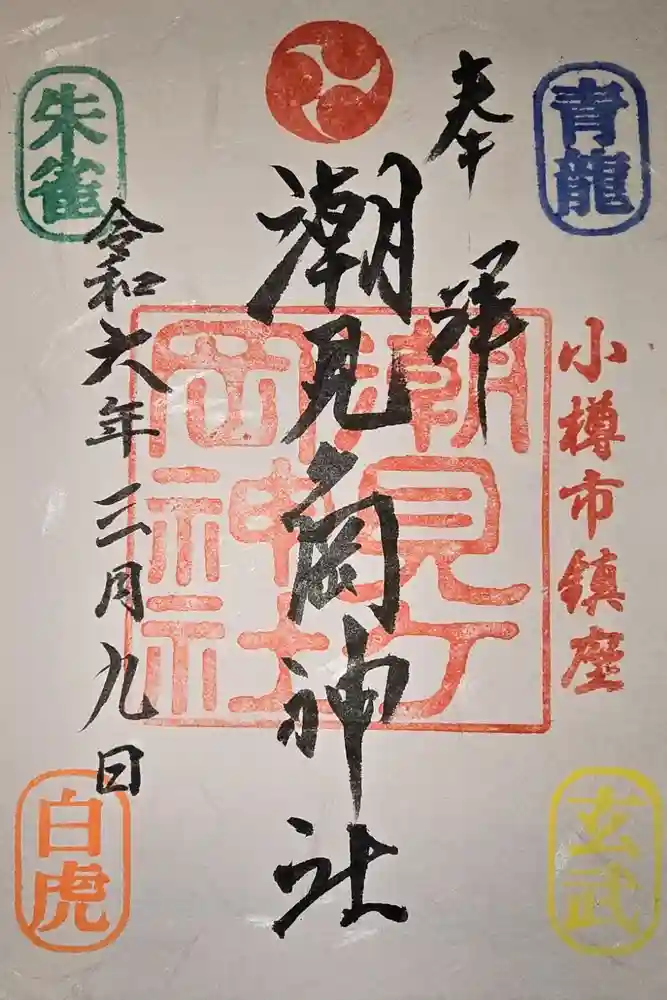 青龍
奉拝
小樽市鎮座
潮見ヶ岡神社
潮見ヶ
岡神社
朱雀
令和六年三月九日
白虎
玄武